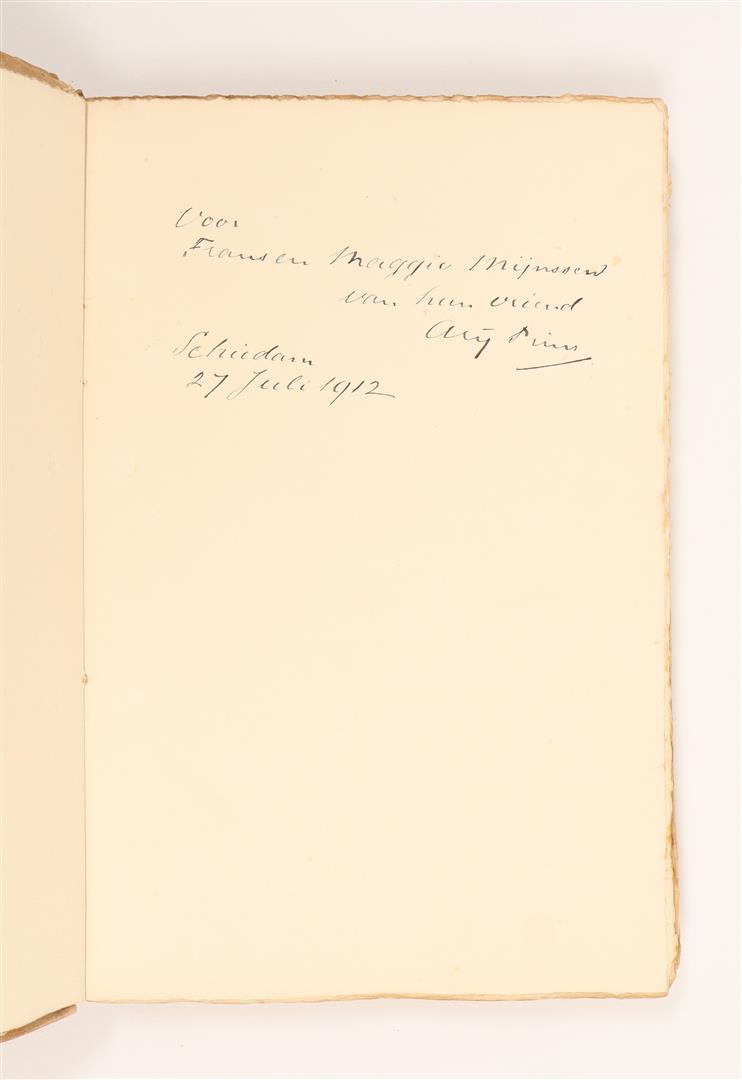 Voor
Frans en Maggie Mijnssen
van hun vriend
Arij Prins
Schiedam
27 Juli 1912